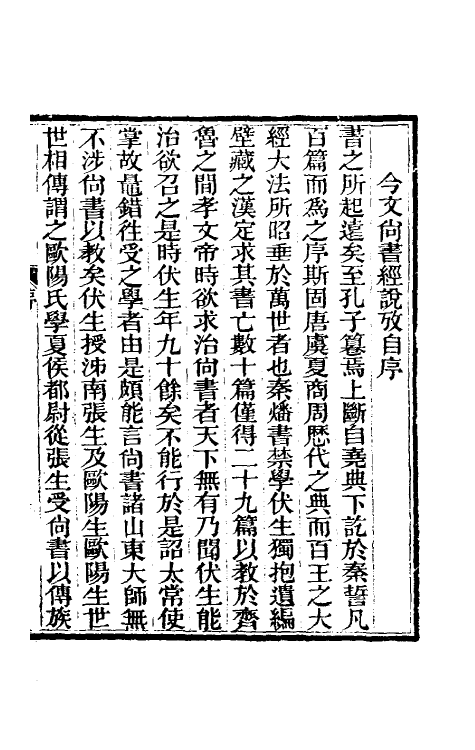 今文尙書經說攷自序
書之所起遠矣至孔子篹焉上斷自堯典下訖於秦誓凡
百篇而爲之序斯固唐虞夏商周歷代之典而百王之大
經大法所昭垂於萬世者也秦燔書禁學伏生獨抱遺編
壁藏之漢定求其書亡數十篇僅得二十九篇以教於齊
魯之間孝文帝時欲求治尙書者天下無有乃聞伏生能
治欲召之是時伏生年九十餘矣不能行於是詔太常使
掌故鼂錯往受之學者由是頗能言尙書諸山東大師無
不涉尙書以教矣伏生授泲南張生及歐陽生歐陽生世
世相傳謂之歐陽氏學夏侯都尉從張生受尙書以傳族
序